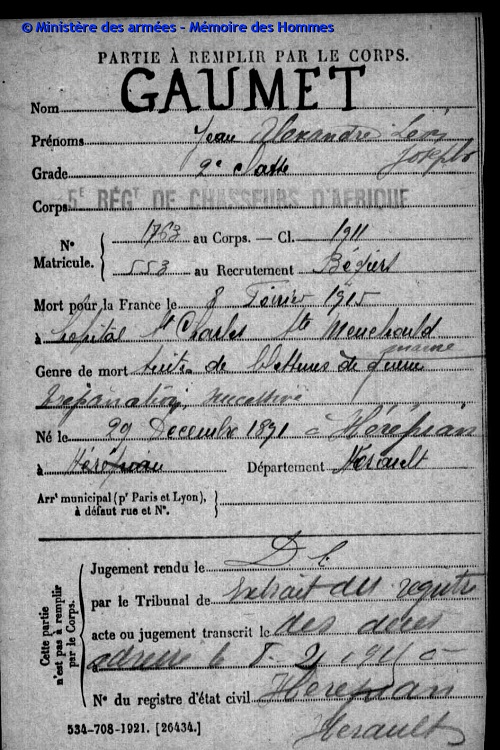 © Ministère des armées - Mémoire des Hommes
PARTIE À REMPLIR PAR LE CORPS.
Nom GAUMET
Prénoms Jean Alexandre Léon
Joseph
Grade 2e classe
Corps 5E RÉGT DE CHASSEURS D'AFRIQUE
No Matricule. { 1763 au Corps. — Cl. 1911
553 au Recrutement Béziers
Mort pour la France le 8 Février 1915
à hôpital St Charles Ste Menehould
marne
Genre de mort suite de blessures de guerre
trépanation
Né le 29 Décembre 1891 à Hérépian
à Hérépian Département Hérault
Arrt municipal (pr Paris et Lyon),
à défaut rue et No.
Cette partie n'est pas à remplir par le Corps.
Jugement rendu le D C
par le Tribunal de Extrait des registres
acte ou jugement transcrit le des décès
adressé le
No du registre d'état civil Hérépian
Hérault
534-708-1921. [26434.]